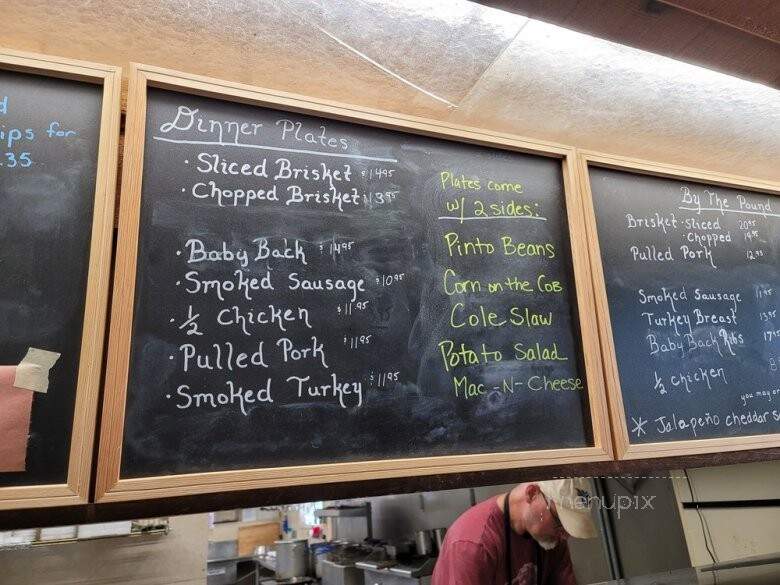 ips for
.35
Dinner Plates
· Sliced Brisket $14⁹⁵
· Chopped Brisket $13⁹⁵
· Baby Back $14⁹⁵
· Smoked Sausage $10⁹⁵
· ½ Chicken $11.⁹⁵
· Pulled Pork $11⁹⁵
· Smoked Turkey $11⁹⁵
Plates come
w/ 2 sides:
Pinto Beans
Corn on the Cob
Cole Slaw
Potato Salad
Mac-N-Cheese
By The Pound
Brisket · Sliced 20⁹⁵
· Chopped 19⁹⁵
Pulled Pork 12.⁹⁵
Smoked Sausage
Turkey Breast
Baby Back Ribs
½ chicken
you may
* Jalapeño cheddar
menupix